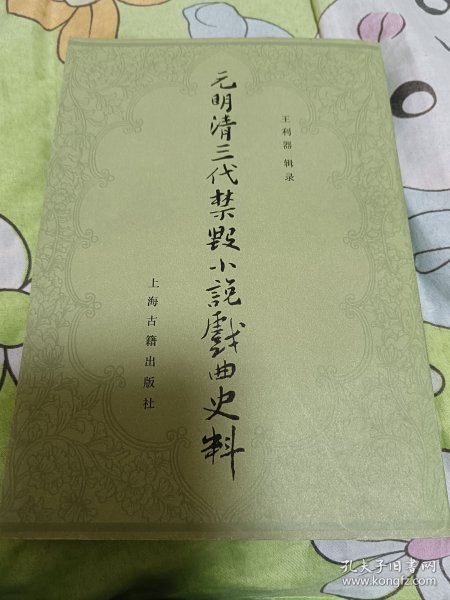 王利器 辑录
元明清三代禁毁小説戲曲史料
上海古籍出版社
孔夫子旧书网
www.kongfz.com